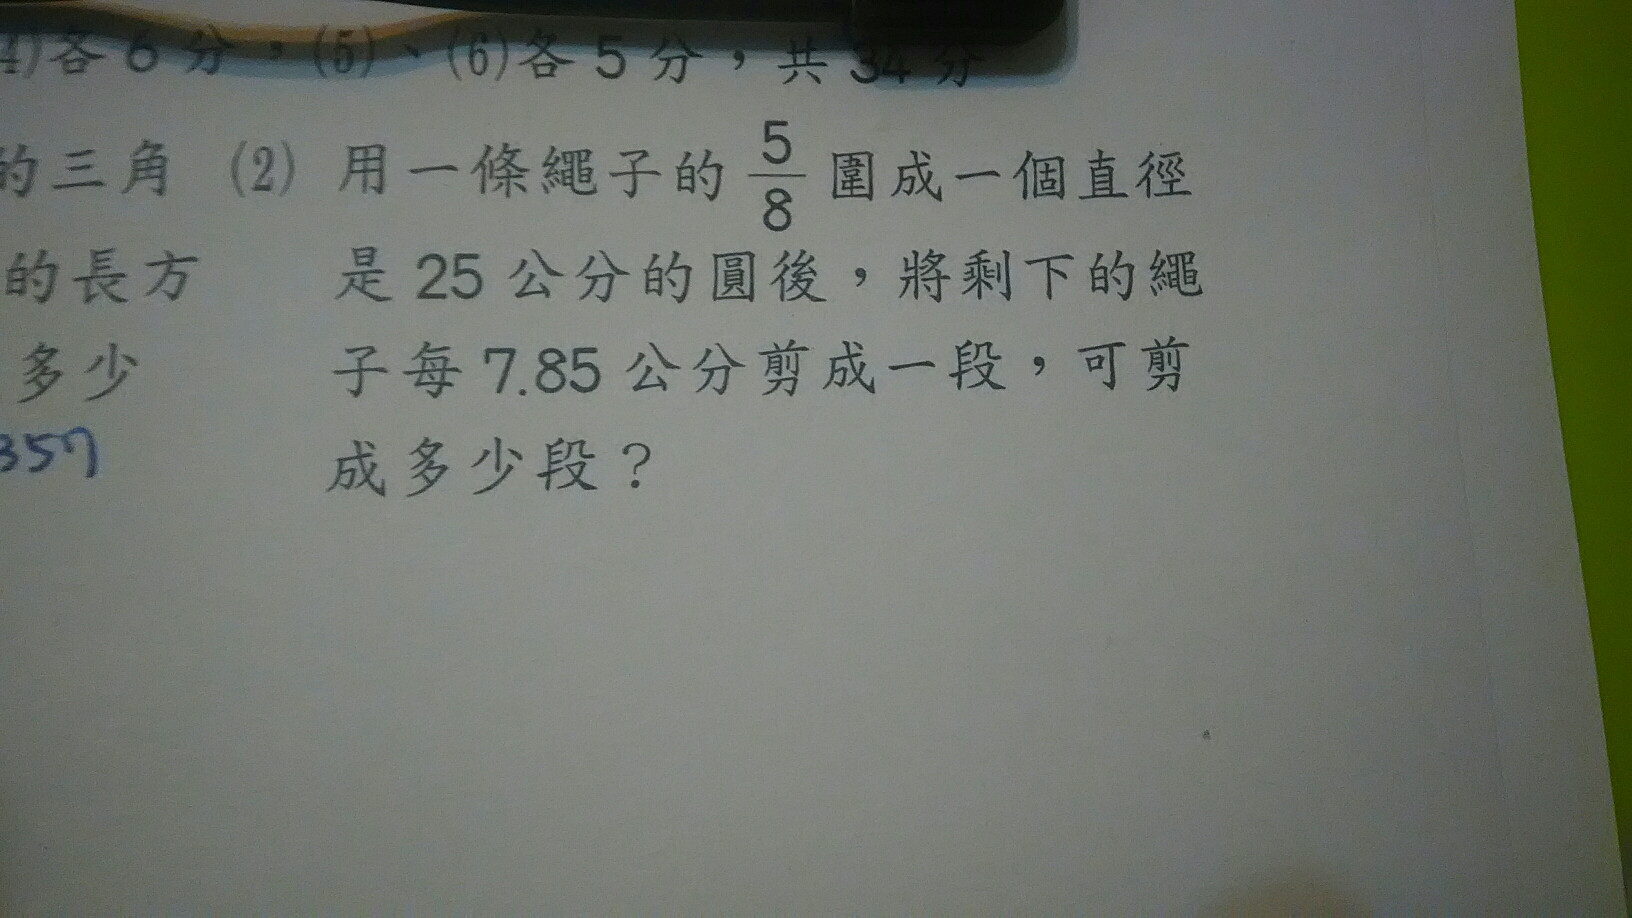 4)各6分，(5)、(6)各5分，共34分
的三角
的長方
多少
357
(2) 用一條繩子的 5/8 圍成一個直徑
是25公分的圓後，將剩下的繩
子每7.85公分剪成一段，可剪
成多少段？